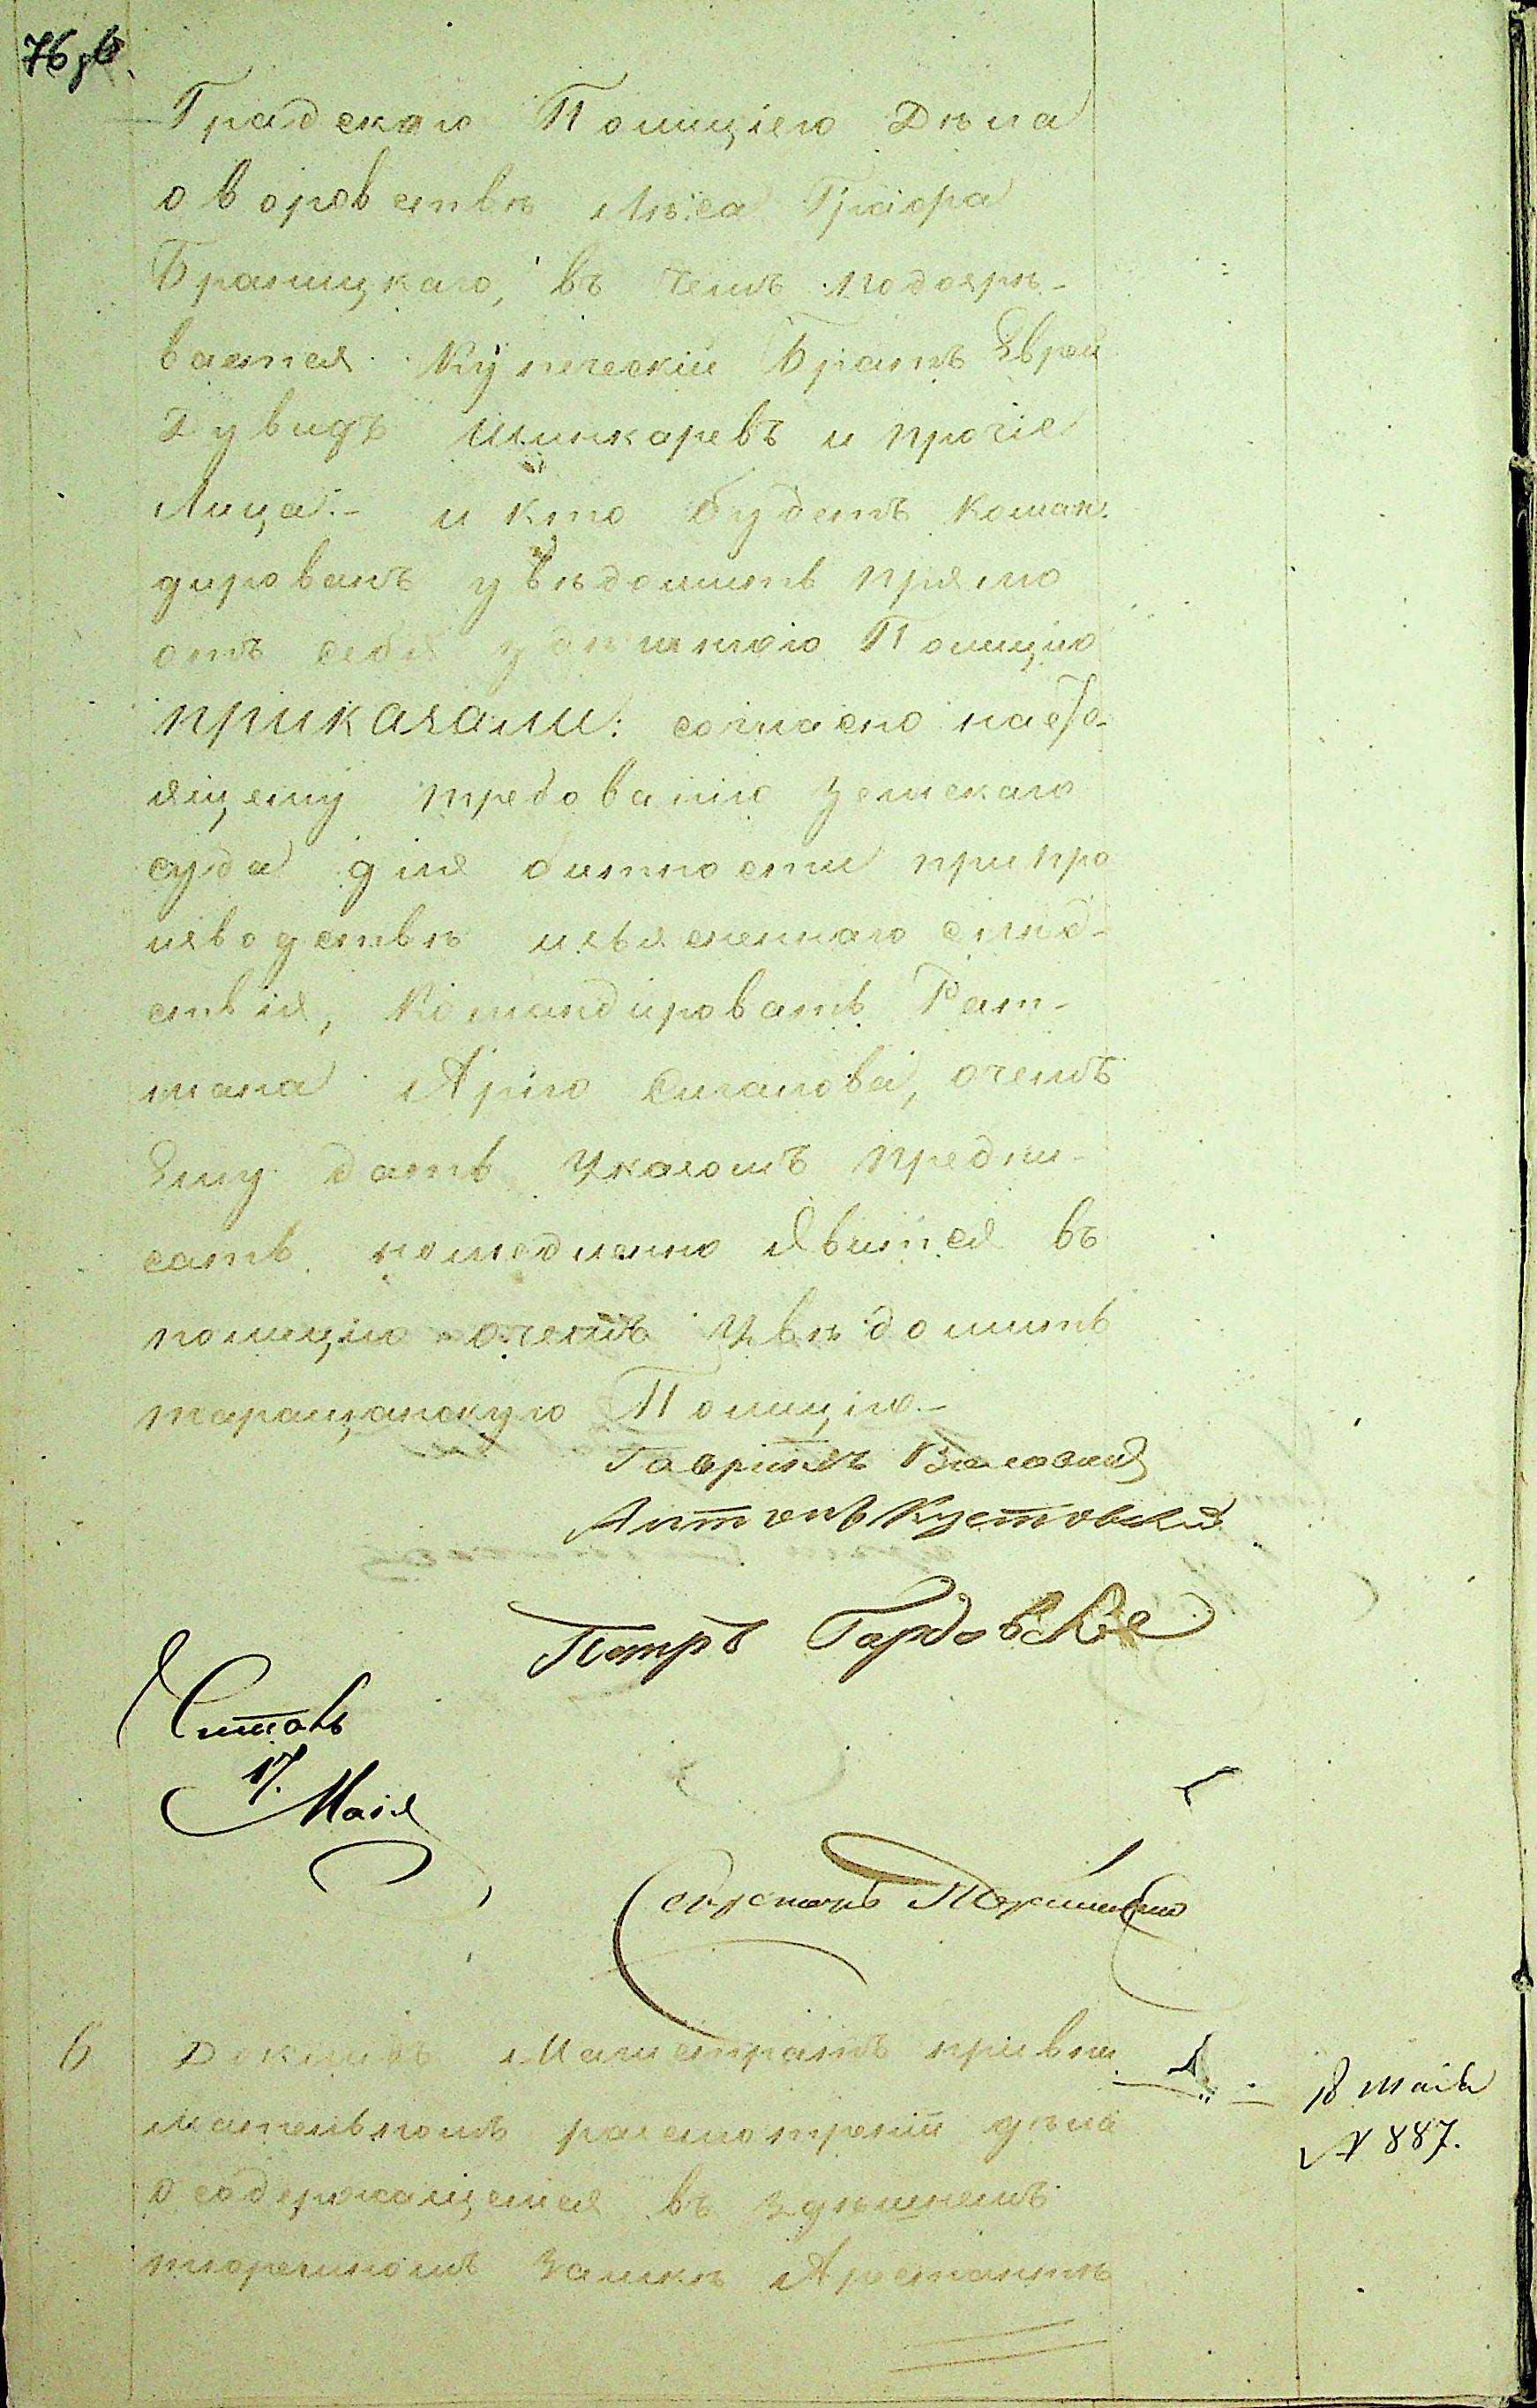 76 об.
Градскою Полициею Дѣла
о воровствѣ Лѣса Графа
Браницкаго, въ чемъ подозрѣ-
вается Купеческій Братъ Еврей
Дувидъ Шинкаревъ и прочіе
Лица:- и кто будетъ коман-
дированъ увѣдомить прямо
отъ себя Полицію
приказали: согласно насто-
ящему требованію Земскаго
суда для битности при про
изводствѣ изъясненнаго слѣд-
ствія, Командировать Рат-
мана Арію, очемъ
Ему дать Указомъ предпи-
сать немедленно Явится въ
полицію очемъ Увѣдомить
таращанскую Полицію.-
Гавриилъ
Антонъ Кустовский
Петръ Гордовскіе
Читалъ
17. Маія
Секретарь
6 Докладъ Магистратъ при вни
мательномъ разсмотреніи дѣла
о содержащемся въ здѣшнемъ
тюремномъ Замкѣ Арестантѣ
18 Маія
№ 887.